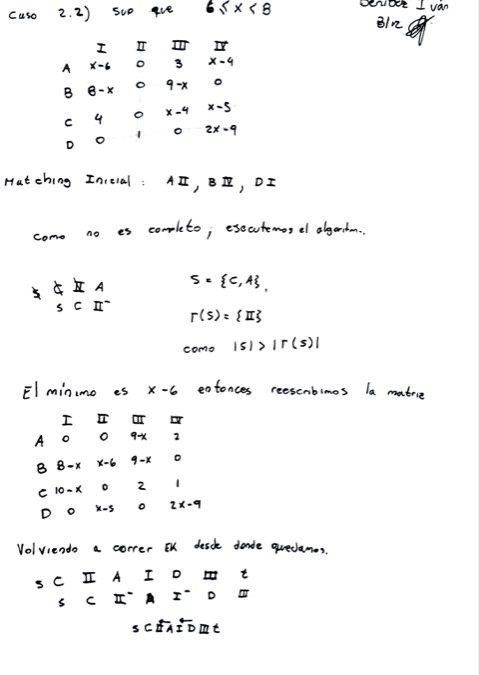 Caso 2.2) Sup que 6 < x < 8
Benitez Iván
3/12
I II III IV
A x-6 0 3 x-4
B 8-x 0 9-x 0
C 4 0 x-4 x-5
D 0 1 0 2x-9
Matching Inicial: A II, B IV, D I
Como no es completo, esecutemos el algoritm..
s C II A
s C II⁻
S = {C,A},
Γ(S) = {II}
como |S| > |Γ(S)|
El mínimo es x-6 entonces reescribimos la matriz
I II III IV
A 0 0 9-x 2
B 8-x x-6 9-x 0
C 10-x 0 2 1
D 0 x-5 0 2x-9
Volviendo a correr EK desde donde quedamos.
s C II A I D III t
s C II⁻ A I⁻ D III
s C II A I D III t